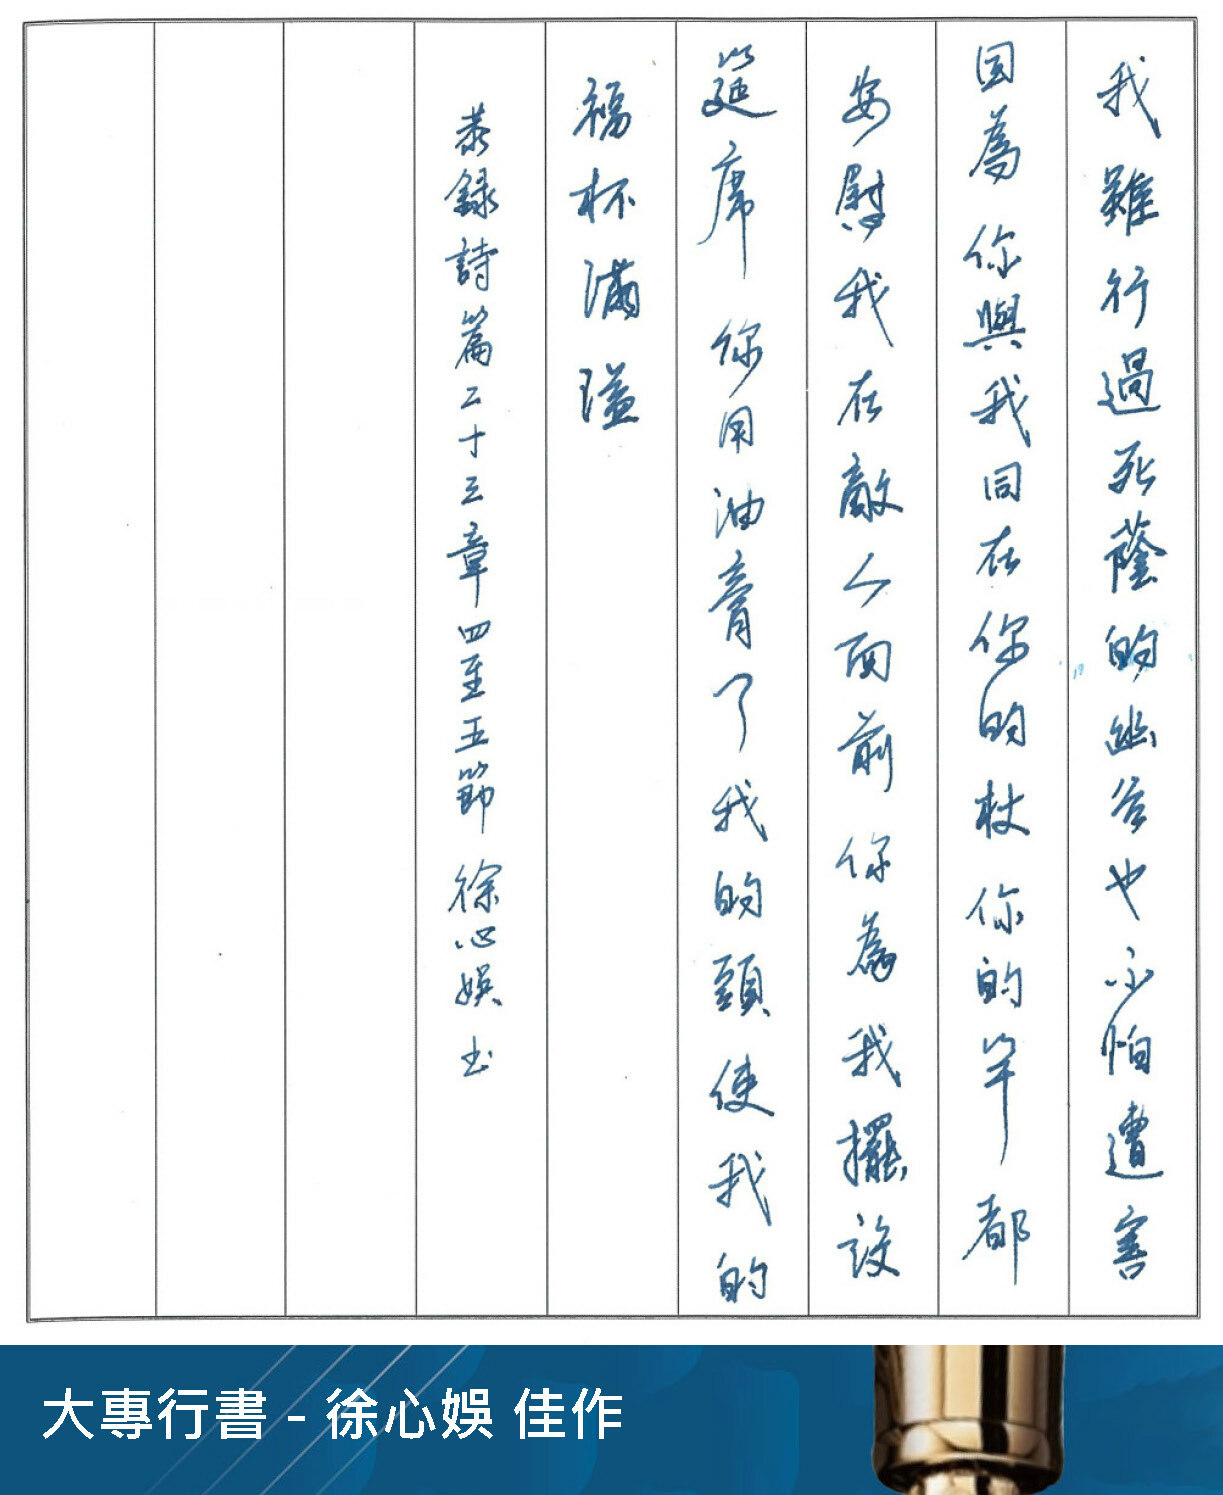 我雖行過死蔭的幽谷也不怕遭害
因為你與我同在你的杖你的竿都
安慰我在敵人面前你為我擺設
筵席你用油膏了我的頭使我的
福杯滿溢
恭錄詩篇二十三章四至五節 徐心娛 书
大專行書 - 徐心娛 佳作